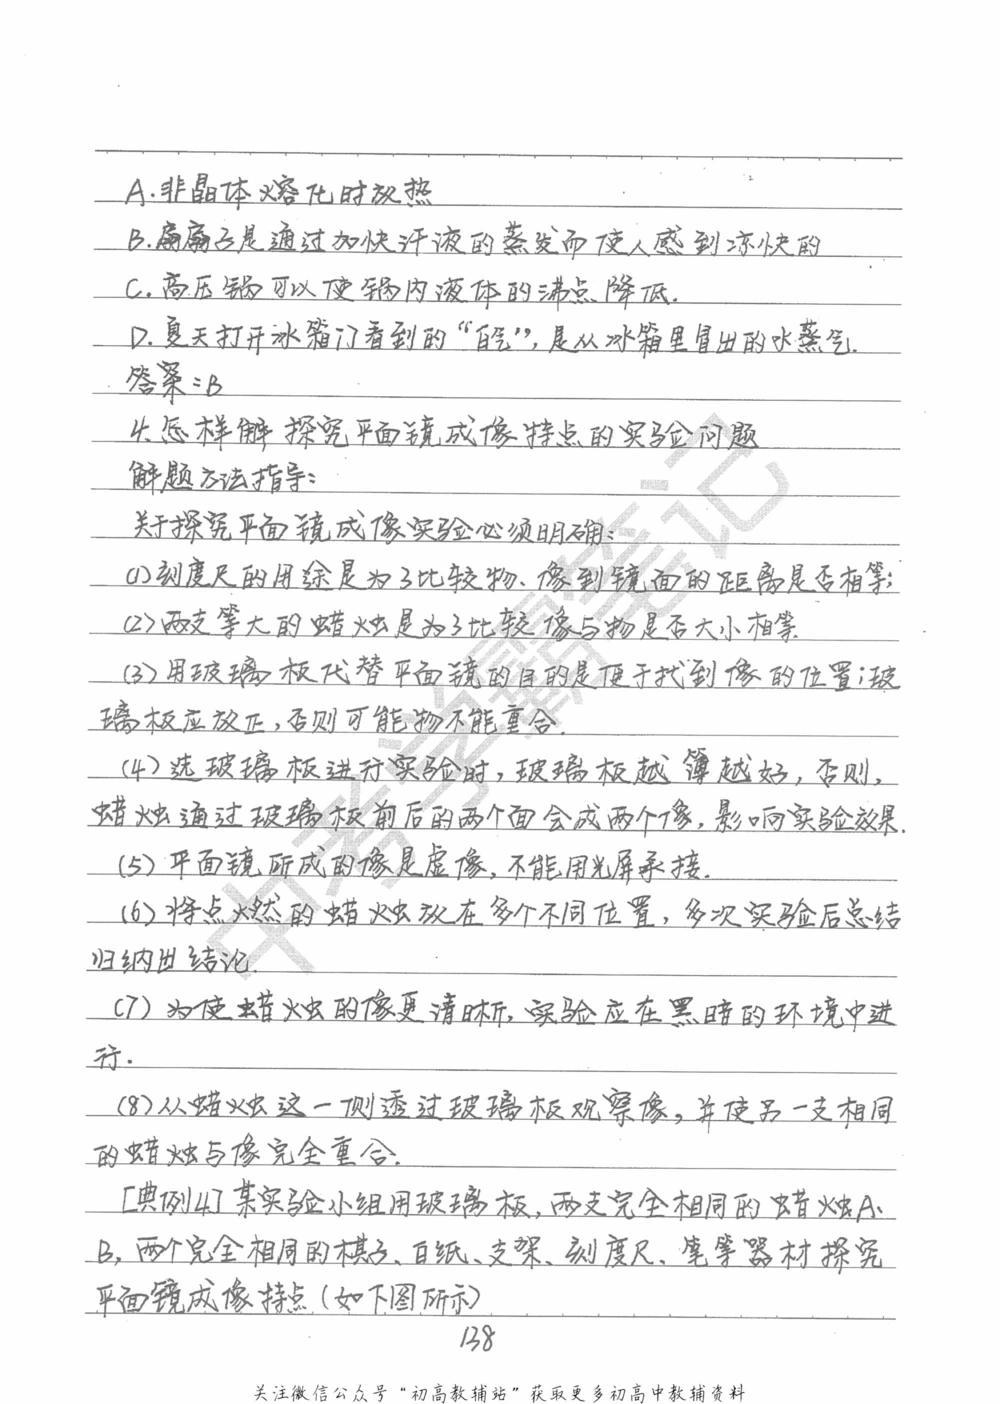 A.非晶体熔化时放热
B.扇扇子是通过加快汗液的蒸发而使人感到凉快的
C.高压锅可以使锅内液体的沸点降低.
D.夏天打开冰箱门看到的“白气”,是从冰箱里冒出的水蒸气.
答案:B
4.怎样解探究平面镜成像特点的实验问题
解题方法指导:
关于探究平面镜成像实验必须明确:
(1)刻度尺的用途是为了比较物、像到镜面的距离是否相等;
(2)两支等大的蜡烛是为了比较像与物是否大小相等.
(3)用玻璃板代替平面镜的目的是便于找到像的位置;玻
璃板应放正,否则可能物不能重合.
(4)选玻璃板进行实验时,玻璃板越簿越好,否则,
蜡烛通过玻璃板前后的两个面会成两个像,影响实验效果.
(5)平面镜所成的像是虚像,不能用光屏承接.
(6)将点燃的蜡烛放在多个不同位置,多次实验后总结
归纳出结论.
(7)为使蜡烛的像更清晰,实验应在黑暗的环境中进
行.
(8)从蜡烛这一侧透过玻璃板观察像,并使另一支相同
的蜡烛与像完全重合.
[典例4]某实验小组用玻璃板,两支完全相同的蜡烛A、
B,两个完全相同的棋子、白纸、支架、刻度尺、笔等器材探究
平面镜成像特点(如下图所示)
138
中考学霸笔记
关注微信公众号“初高教辅站”获取更多初高中教辅资料